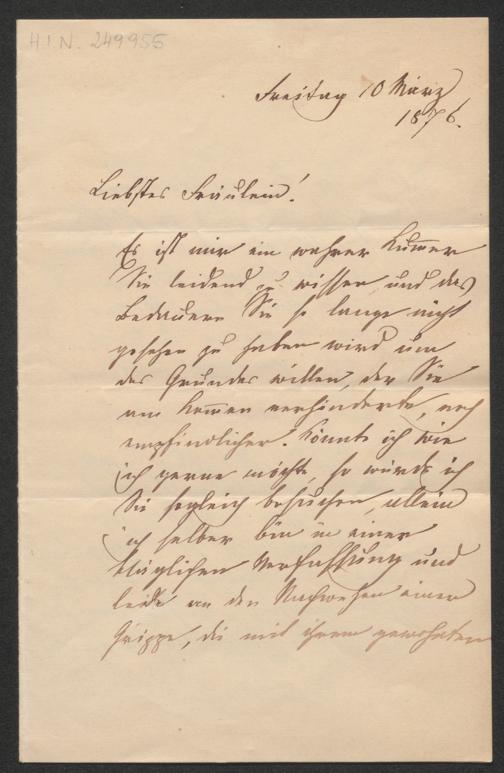 H.I.N. 249955
Freitag 10 März
1876.
Liebstes Fräulein!
Es ist mir ein wahrer Kummer
Sie leidend zu wissen, und das
Bedauern Sie so lange nicht
gesehen zu haben wird um
des Grundes willen, der Sie
am Kommen verhinderte, noch
empfindlicher. Könnte ich wie
ich gerne möchte, so würde ich
Sie sogleich besuchen, allein
ich selber bin in einer
kläglichen Verfassung und
leide an den Nachwehen einer
Grippe, die mit ihrem gewohnten